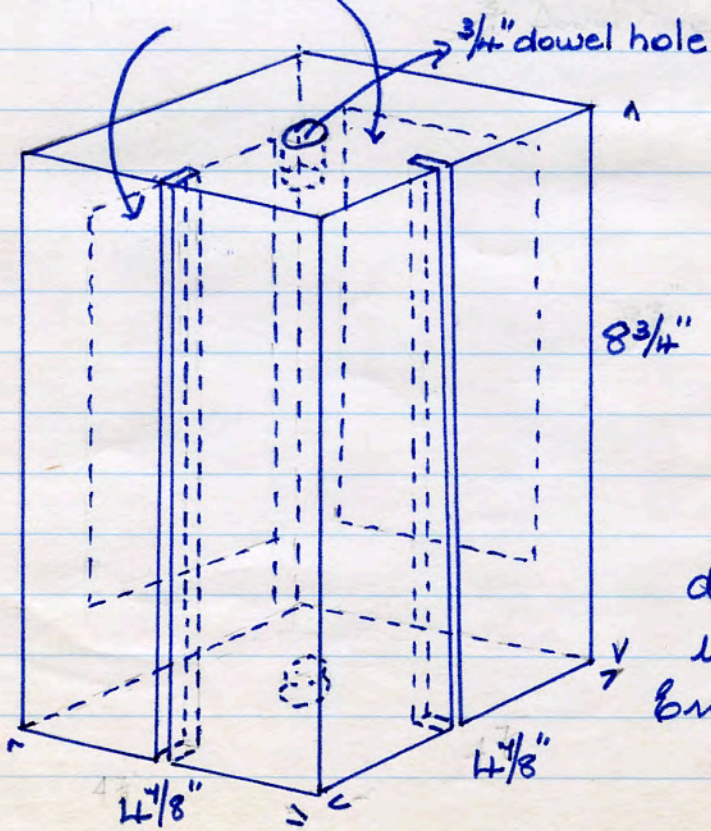 3/4" dowel hole
8 3/4"
4 7/8"
4 7/8"